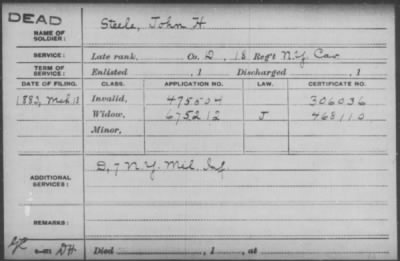 DEAD
NAME OF SOLDIER: Steele, John H
SERVICE: Late rank, Co. D, 18 Reg't N.Y. Cav
TERM OF SERVICE: Enlisted , 1 Discharged , 1
DATE OF FILING. CLASS. APPLICATION NO. LAW. CERTIFICATE NO.
1883, Mch 13 Invalid, 475504 306036
Widow, 675212 J 468110
Minor,
ADDITIONAL SERVICES: D, 7 N.Y. Mil. Inf.
REMARKS:
DH Died , 1 , at